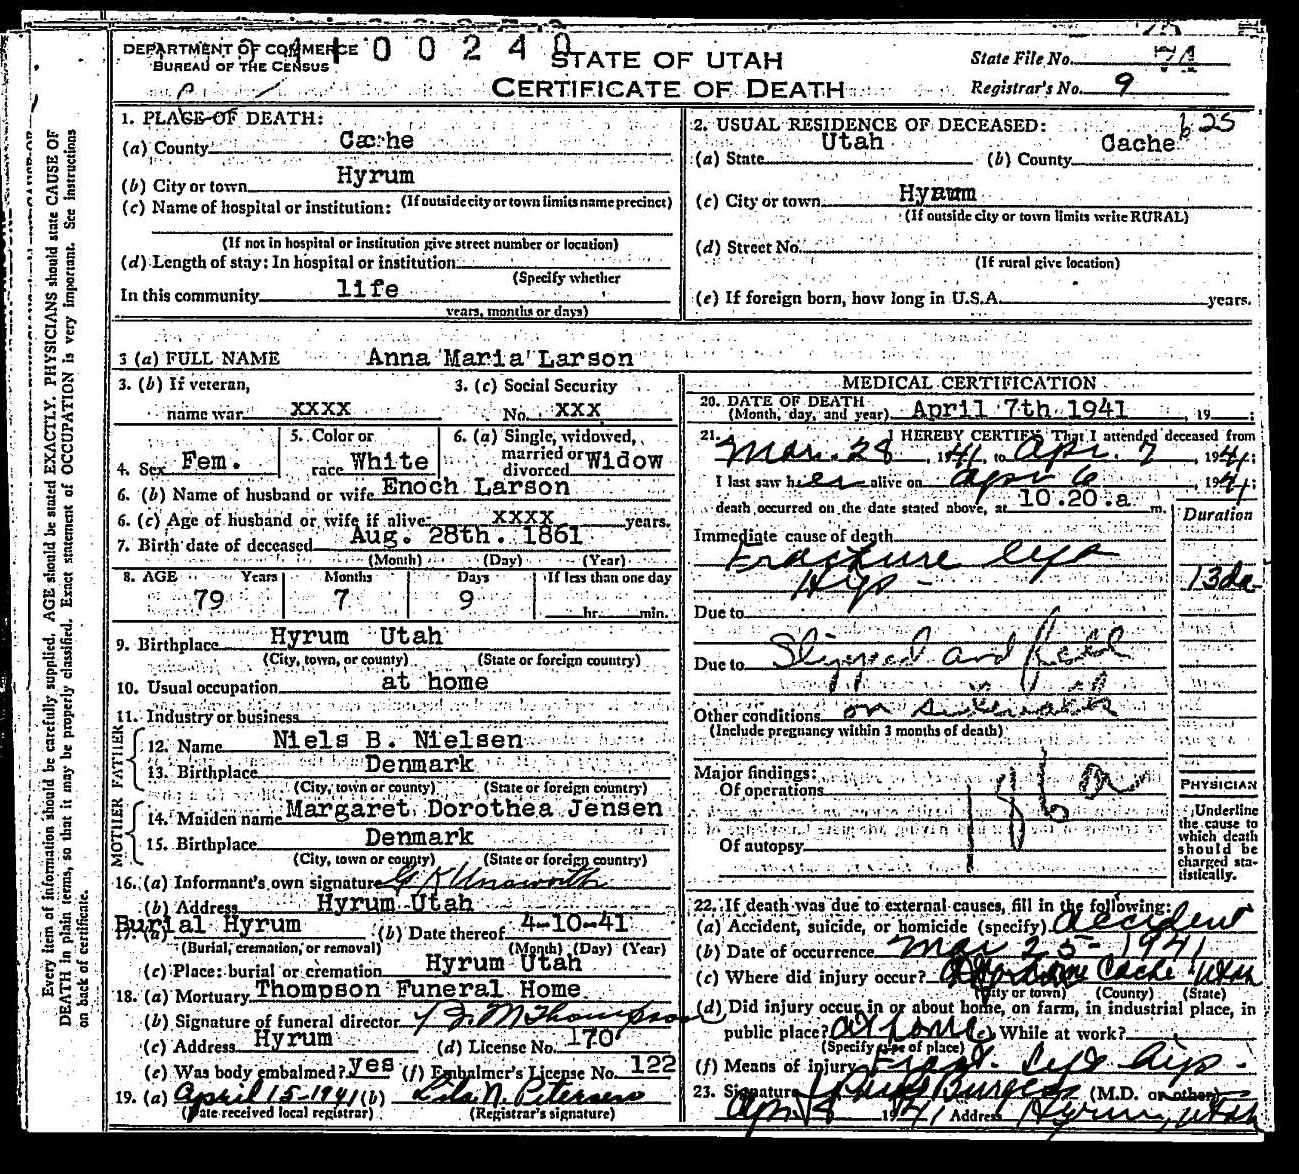 DEPARTMENT OF COMMERCE
BUREAU OF THE CENSUS
4 1 0 0 2 4 0
STATE OF UTAH
CERTIFICATE OF DEATH
State File No.
Registrar's No. 9
1. PLACE OF DEATH:
(a) County Cache
(b) City or town Hyrum
(If outside city or town limits name precinct)
(c) Name of hospital or institution:
(If not in hospital or institution give street number or location)
(d) Length of stay: In hospital or institution
(Specify whether
In this community life
years, months or days)
2. USUAL RESIDENCE OF DECEASED:
(a) State Utah (b) County Cache
(c) City or town Hyrum
(If outside city or town limits write RURAL)
(d) Street No.
(If rural give location)
(e) If foreign born, how long in U.S.A. years.
3 (a) FULL NAME Anna Maria Larson
3. (b) If veteran,
name war xxxx
3. (c) Social Security
No. xxx
4. Sex Fem.
5. Color or
race White
6. (a) Single, widowed,
married or
divorced Widow
6. (b) Name of husband or wife Enoch Larson
6. (c) Age of husband or wife if alive xxxx years.
7. Birth date of deceased Aug. 28th. 1861
(Month) (Day) (Year)
8. AGE Years Months Days If less than one day
79 7 9 hr. min.
9. Birthplace Hyrum Utah
(City, town, or county) (State or foreign country)
10. Usual occupation at home
11. Industry or business
FATHER
12. Name Niels B. Nielsen
13. Birthplace Denmark
(City, town or county) (State or foreign country)
MOTHER
14. Maiden name Margaret Dorothea Jensen
15. Birthplace Denmark
(City, town or county) (State or foreign country)
16. (a) Informant's own signature G K Unsworth
(b) Address Hyrum Utah
17. (a) Burial Hyrum (b) Date thereof 4-10-41
(Burial, cremation, or removal) (Month) (Day) (Year)
(c) Place: burial or cremation Hyrum Utah
18. (a) Mortuary Thompson Funeral Home
(b) Signature of funeral director M Thompson
(c) Address Hyrum (d) License No. 170
(e) Was body embalmed? yes (f) Embalmer's License No. 122
19. (a) April 15-1941 (b) Lila N. Petersen
(Date received local registrar) (Registrar's signature)
MEDICAL CERTIFICATION
20. DATE OF DEATH
(Month, day, and year) April 7th 1941, 19
21. I HEREBY CERTIFY, That I attended deceased from
Mar. 28, 1941, to Apr. 7, 1941;
I last saw her alive on Apr 6, 1941;
death occurred on the date stated above, at 10.20.a m.
Duration
Immediate cause of death
Fracture left
Hip - 13 da-
Due to
Due to Slipped and fell
Other conditions on sidewalk
(Include pregnancy within 3 months of death)
Major findings:
Of operations
186 a
Of autopsy
PHYSICIAN
Underline
the cause to
which death
should be
charged sta-
tistically.
22. If death was due to external causes, fill in the following:
(a) Accident, suicide, or homicide (specify) accident
(b) Date of occurrence Mar 25-1941
(c) Where did injury occur? Cache Utah
(City or town) (County) (State)
(d) Did injury occur in or about home, on farm, in industrial place, in
public place? at home While at work?
(Specify type of place)
(f) Means of injury Fract. Left hip -
23. Signature Burgess (M.D. or other)
Apr. 8 1941 Address Hyrum, Utah
Every item of information should be carefully supplied. AGE should be stated EXACTLY. PHYSICIANS should state CAUSE OF
DEATH in plain terms, so that it may be properly classified. Exact statement of OCCUPATION is very important. See instructions
on back of certificate.